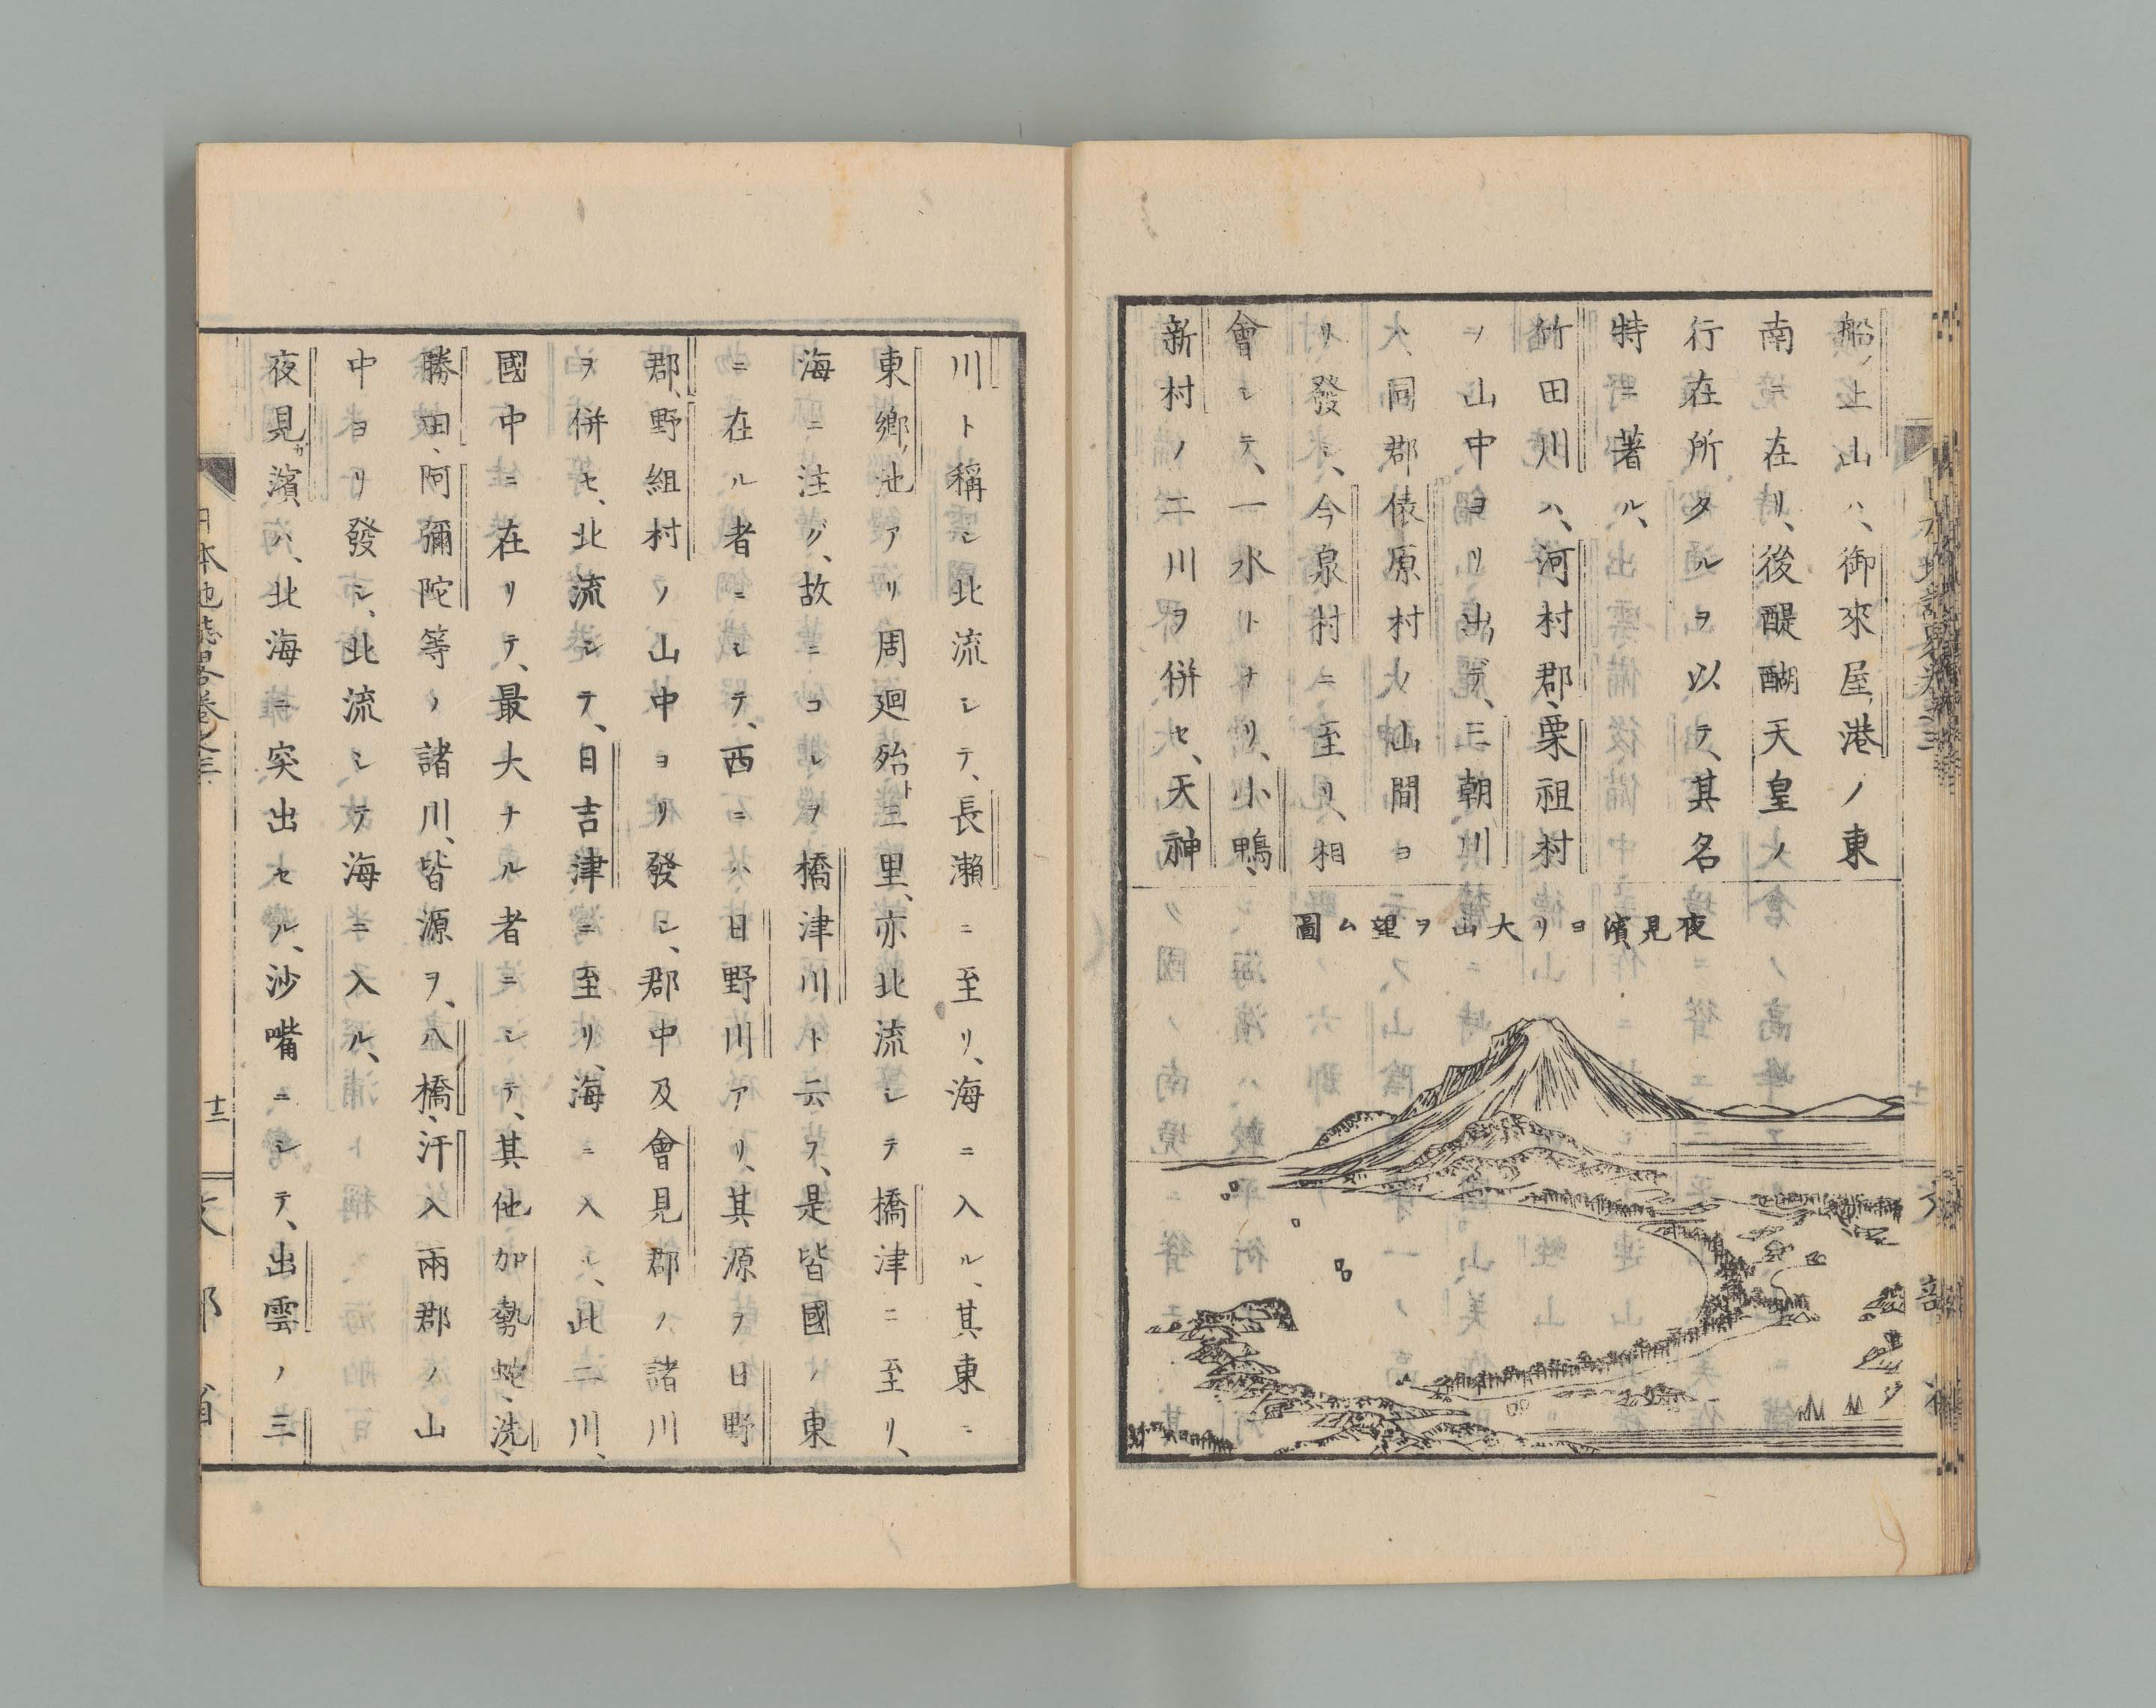 船ノ上山ハ、御來屋港ノ東
南ニ在リ、後醍醐天皇ノ
行在所タルヲ以テ、其名
特ニ著ル、
竹田川ハ、河村郡、栗祖村
ノ山中ヨリ出デ、三朝川
ハ、同郡俵原村ノ山間ヨ
リ發シ、今泉村ニ至リ、相
會シテ、一水トナリ、小鴨、
新村ノ二川ヲ併セ、天神
夜見濱ヨリ大山ヲ望ム圖
川ト稱シ北流シテ、長瀬ニ至リ、海ニ入ル、其東ニ
東鄉ノ池アリ周廻殆ト三里、亦北流シテ橋津ニ至リ、
海ニ注グ、故ニコレヲ橋津川ト云フ、是皆國ノ東
ニ在ル者ニシテ、西ニハ日野川アリ、其源ヲ日野
郡、野組村ノ山中ヨリ發シ、郡中及會見郡ノ諸川
ヲ併セ、北流シテ、日吉津ニ至リ、海ニ入ル、此二川、
國中ニ在リテ、最大ナル者ニシテ、其他加勢蛇、洗、
勝田、阿彌陀等ノ諸川、皆源ヲ、八橋、汗入兩郡ノ山
中ヨリ發シ、北流シテ海ニ入ル、
夜見ガ濱ハ、北海ニ突出セル、沙嘴ニシテ、出雲ノ三
日本地誌畧卷之三
十二
文部省